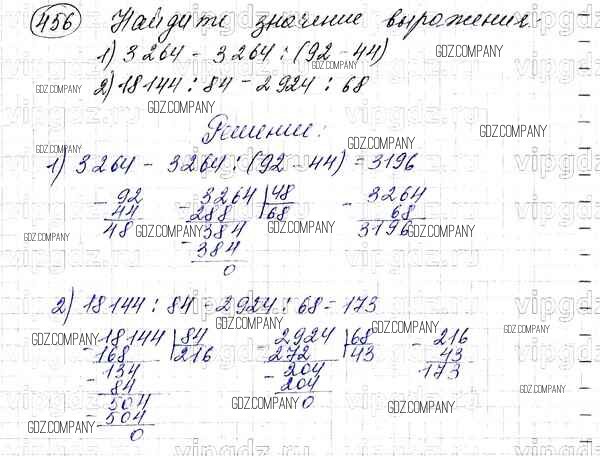 456 Найдите значение выражения.
1) 3264 - 3264 : (92 - 44)
2) 18144 : 84 - 2924 : 68
Решение:
1) 3264 - 3264 : (92 - 44) = 3196
- 92 - 3264 | 48 - 3264
44 288 | 68 68
48 - 384 3196
384
0
2) 18144 : 84 - 2924 : 68 = 173
- 18144 | 84 - 2924 | 68 - 216
168 | 216 272 | 43 43
- 134 - 204 173
84 204
- 504 0
504
0
GDZ.COMPANY
vipgdz.ru